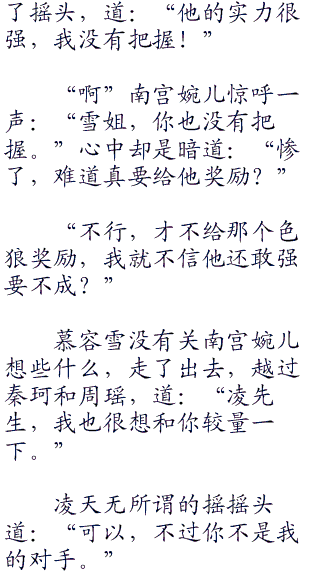 了摇头，道：“他的实力很
强，我没有把握！”
“啊”南宫婉儿惊呼一
声：“雪姐，你也没有把
握。”心中却是暗道：“惨
了，难道真要给他奖励？”
“不行，才不给那个色
狼奖励，我就不信他还敢强
要不成？”
慕容雪没有关南宫婉儿
想些什么，走了出去，越过
秦珂和周瑶，道：“凌先
生，我也很想和你较量一
下。”
凌天无所谓的摇摇头
道：“可以，不过你不是我
的对手。”